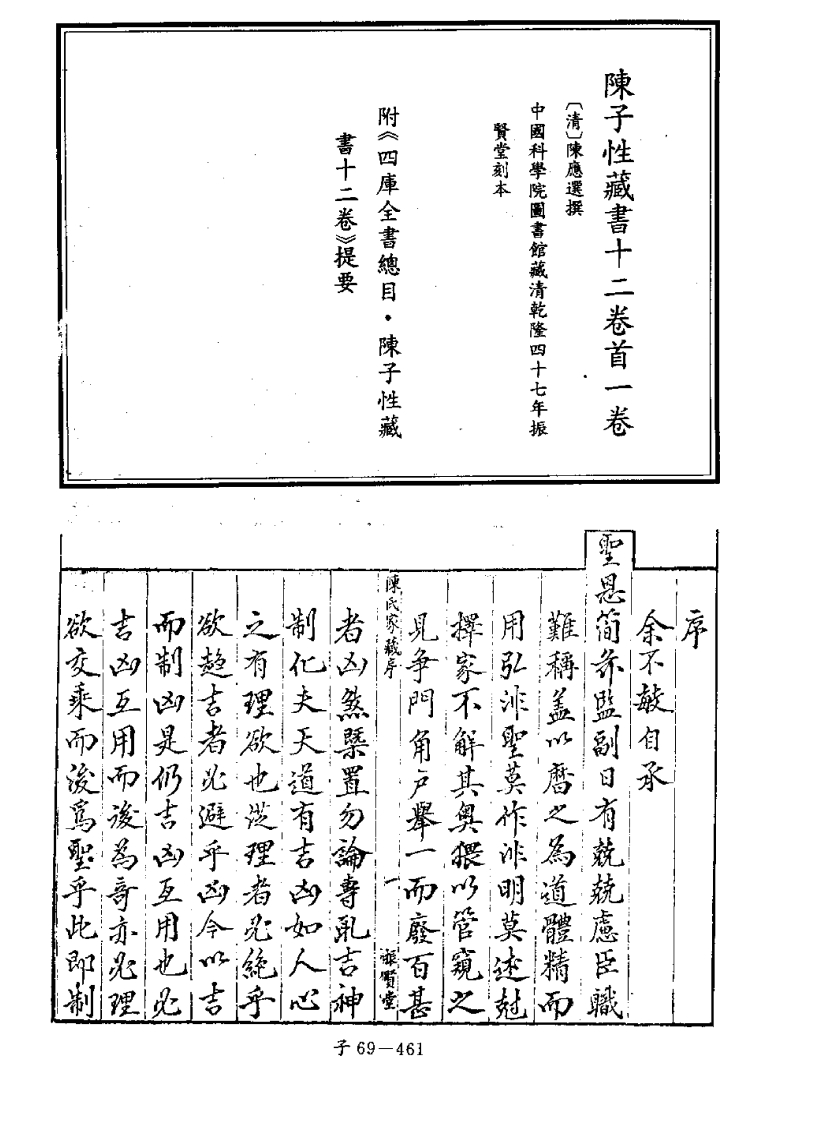 陳子性藏書十二卷首一卷
〔清〕陳應選撰
中國科學院圖書館藏清乾隆四十七年振
賢堂刻本
附《四庫全書總目·陳子性藏
書十二卷》提要
序
余不敏自承
聖恩簡弁監副日有兢兢慮臣職
難稱盖以曆之為道體精而
用弘非聖莫作非明莫述
擇家不解其奥猥以管窺之
見争門角户舉一而廢百甚
陳氏家藏序
一
振賢堂
者凶煞槩置勿論專
吉神
制化夫天道有吉凶如人心
之有理欲也從理者必絶乎
欲趋吉者必避乎凶今以吉
而制凶是仍吉凶互用也必
吉凶互用而後為奇亦必理
欲交乘而後爲聖乎此即制
子69—461